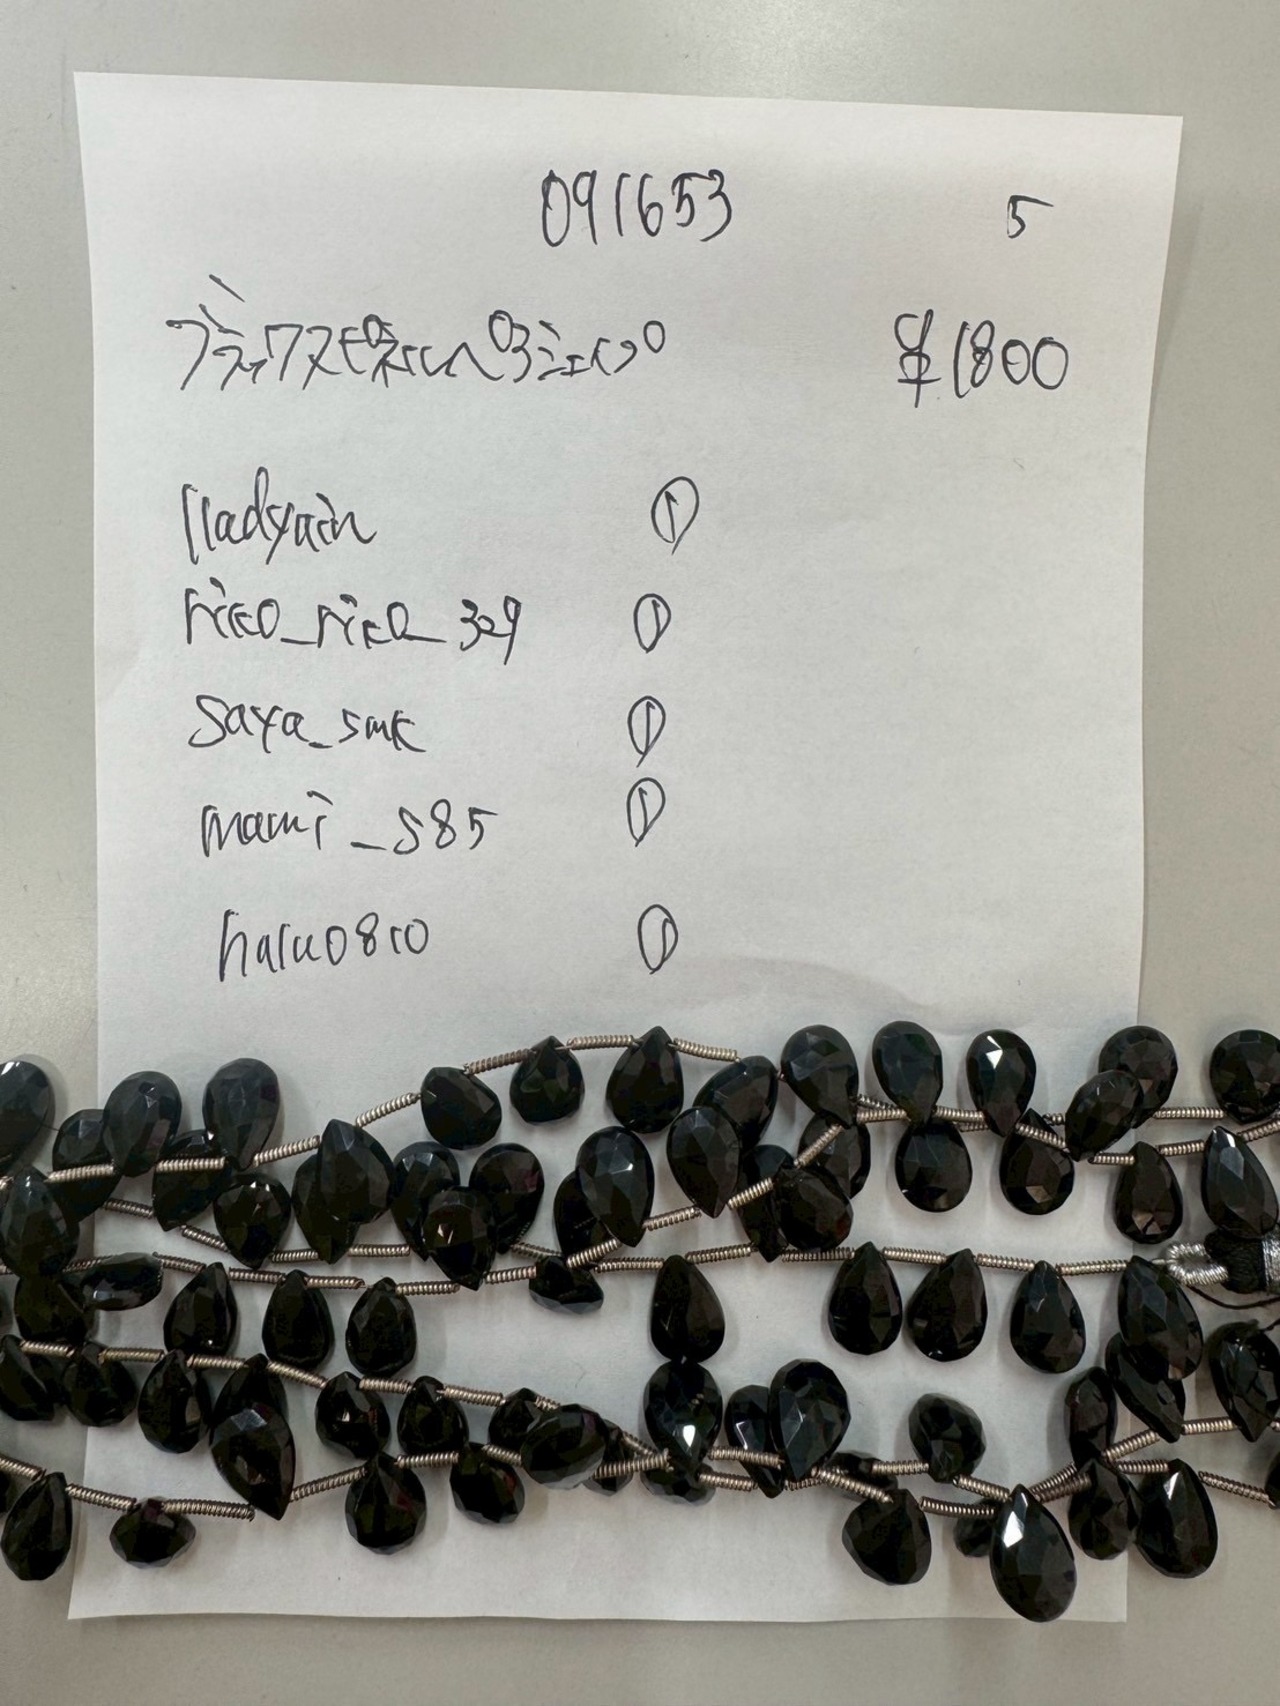 091653 5
ブラックスピネルペアシェイプ ¥1800
lladyain ①
rico_rico_329 ①
saya_smk ①
mami_s85 ①
haru0810 ①